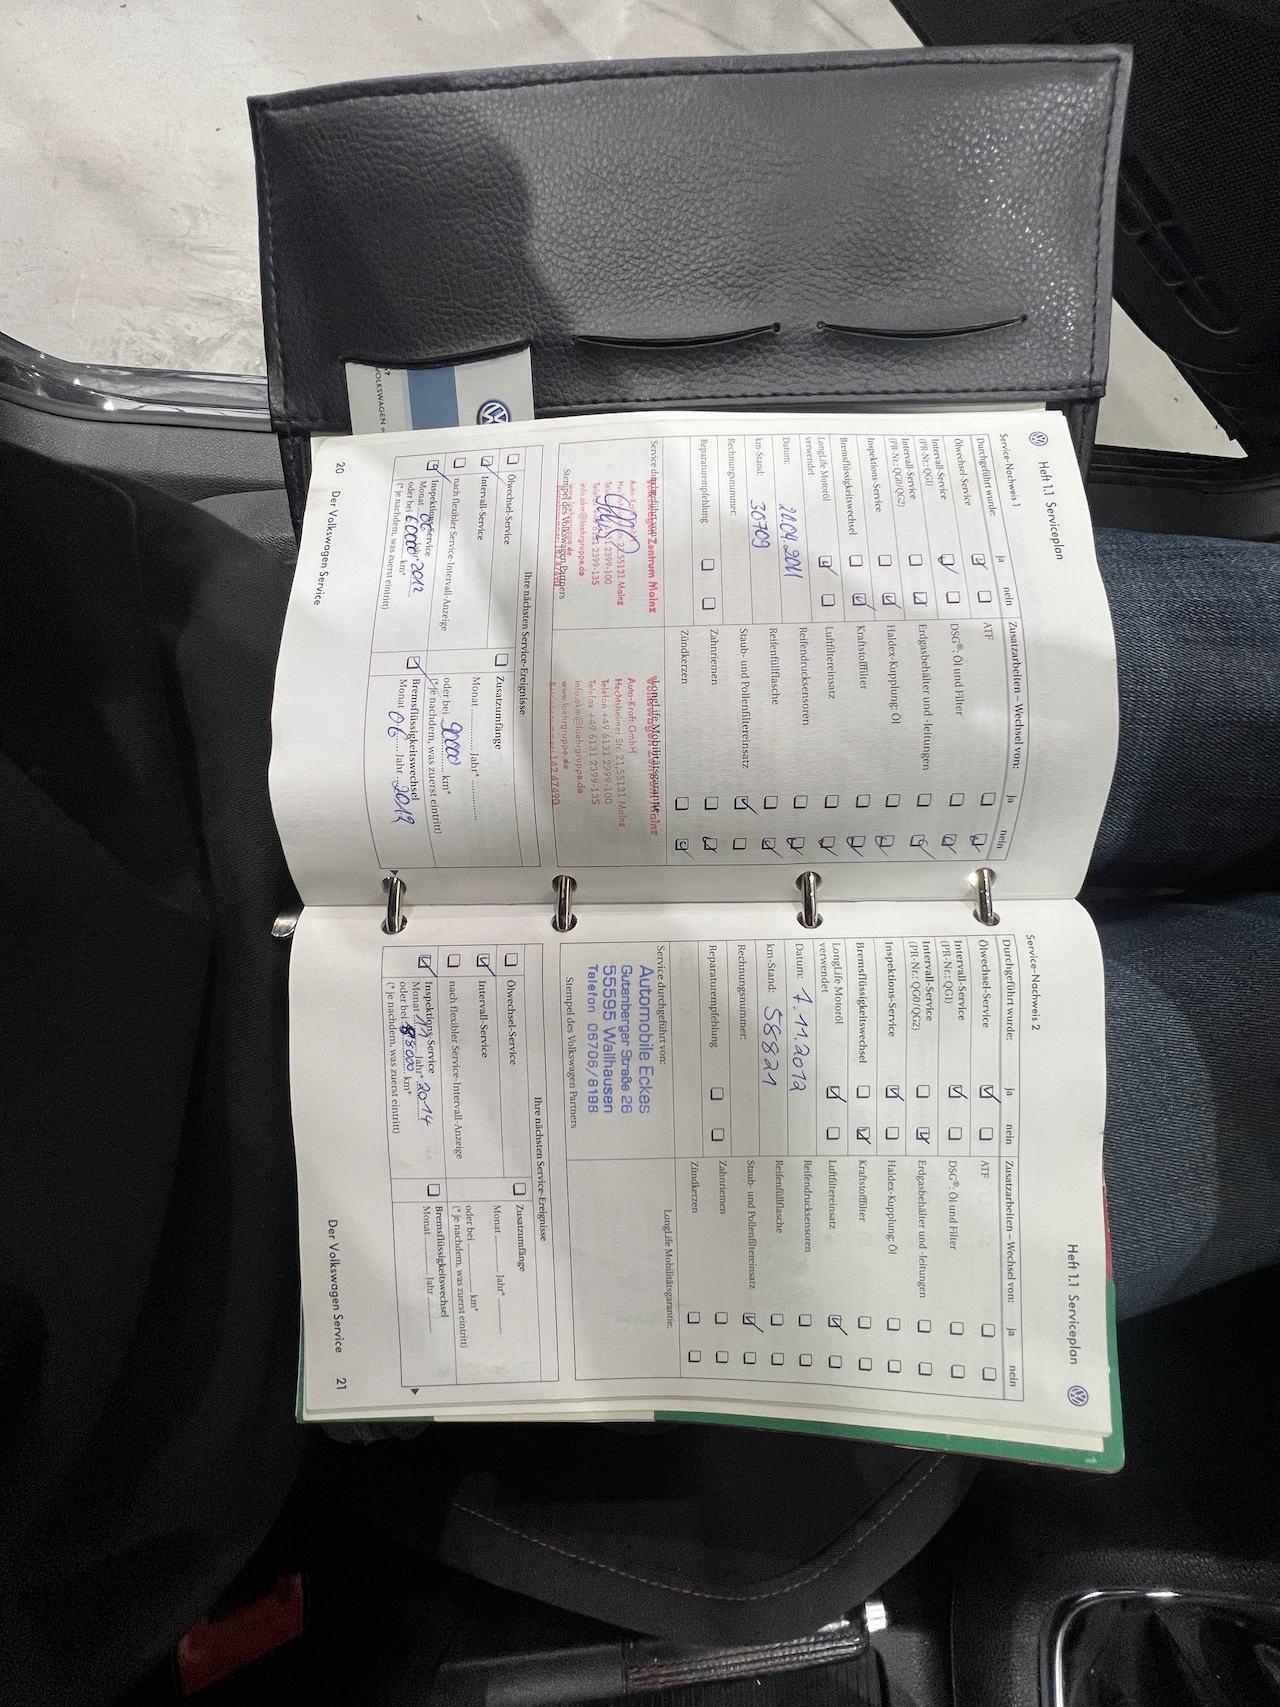 VOLKSWAGEN
Heft 1.1 Serviceplan
Service-Nachweis 1
Durchgeführt wurde: ja nein
Ölwechsel-Service
Intervall-Service
(PR-Nr.: QG1)
Intervall-Service
(PR-Nr.: QG0/QG2)
Inspektions-Service
Bremsflüssigkeitswechsel
LongLife Motoröl
verwendet
Datum:
km-Stand: 30709
Rechnungsnummer:
Reparaturempfehlung
Zusatzarbeiten – Wechsel von: ja nein
ATF
DSG®: Öl und Filter
Erdgasbehälter und -leitungen
Haldex-Kupplung: Öl
Kraftstofffilter
Luftfiltereinsatz
Reifendrucksensoren
Reifenfüllflasche
Staub- und Pollenfiltereinsatz
Zahnriemen
Zündkerzen
Service durchgeführt von:
Volkswagen Zentrum Mainz
21, 55131 Mainz
2399-100
2399-135
info.akm@loehrgruppe.de
Stempel des Volkswagen Partners
LongLife Mobilitätsgarantie:
Volkswagen Zentrum Mainz
Auto-Kraft GmbH
Hechtsheimer Str. 21, 55131 Mainz
Telefon +49 6131 2399-100
Telefax +49 6131 2399-135
info.akm@loehrgruppe.de
www.loehrgruppe.de
Ihre nächsten Service-Ereignisse
Ölwechsel-Service
Intervall-Service
nach flexibler Service-Intervall-Anzeige
Inspektions-Service
Monat 06 Jahr* 2012
oder bei 60000 km*
(* je nachdem, was zuerst eintritt)
Zusatzumfänge
Monat Jahr*
oder bei 90000 km*
(* je nachdem, was zuerst eintritt)
Bremsflüssigkeitswechsel
Monat 06 Jahr
20 Der Volkswagen Service
Heft 1.1 Serviceplan
Service-Nachweis 2
Durchgeführt wurde: ja nein
Ölwechsel-Service
Intervall-Service
(PR-Nr.: QG1)
Intervall-Service
(PR-Nr.: QG0/QG2)
Inspektions-Service
Bremsflüssigkeitswechsel
LongLife Motoröl
verwendet
Datum: 7.11.2012
km-Stand: 58821
Rechnungsnummer:
Reparaturempfehlung
Zusatzarbeiten – Wechsel von: ja nein
ATF
DSG®: Öl und Filter
Erdgasbehälter und -leitungen
Haldex-Kupplung: Öl
Kraftstofffilter
Luftfiltereinsatz
Reifendrucksensoren
Reifenfüllflasche
Staub- und Pollenfiltereinsatz
Zahnriemen
Zündkerzen
Service durchgeführt von:
Automobile Eckes
Gutenberger Straße 26
55595 Wallhausen
Telefon 06706/8198
Stempel des Volkswagen Partners
LongLife Mobilitätsgarantie:
Ihre nächsten Service-Ereignisse
Ölwechsel-Service
Intervall-Service
nach flexibler Service-Intervall-Anzeige
Inspektions-Service
Monat Jahr* 2014
oder bei km*
(* je nachdem, was zuerst eintritt)
Zusatzumfänge
Monat Jahr*
oder bei km*
(* je nachdem, was zuerst eintritt)
Bremsflüssigkeitswechsel
Monat Jahr
Der Volkswagen Service 21